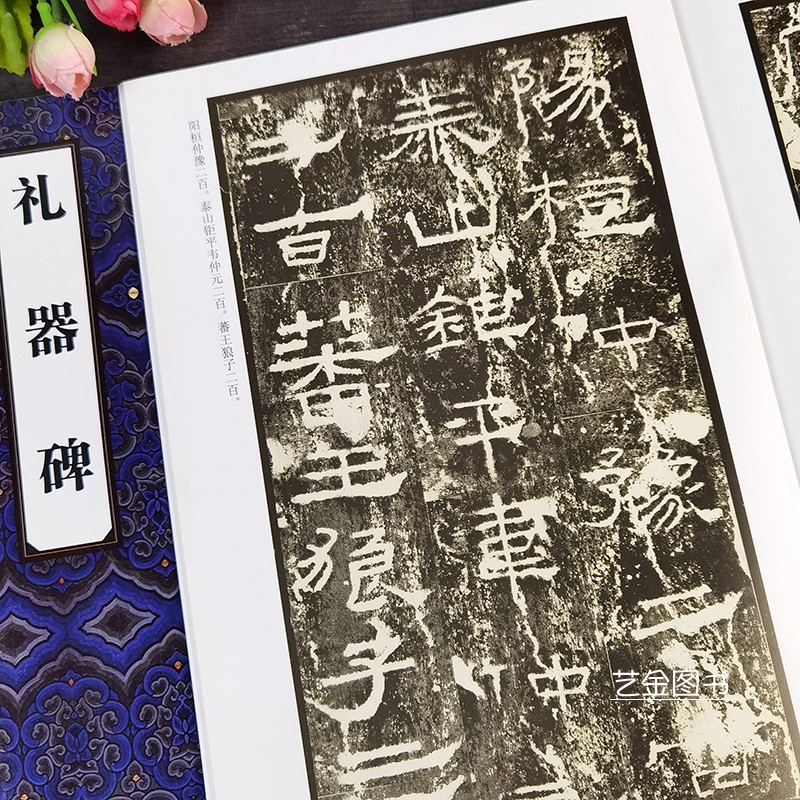 礼器碑
阳桓仲豫二百。泰山钜平韦仲元二百。蕃王狼子二百。
陽桓仲豫二百
泰山鉅平韋仲
二百蕃王狼子二
艺金图书